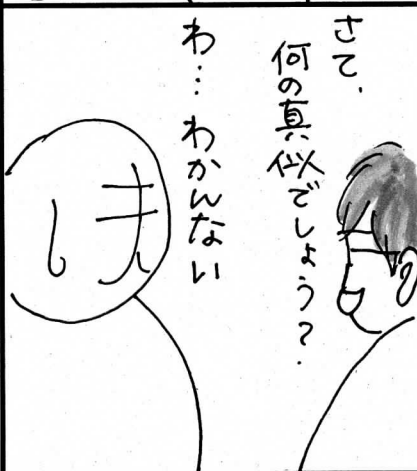 さて、
何の真似でしょう？
わ…わかんない